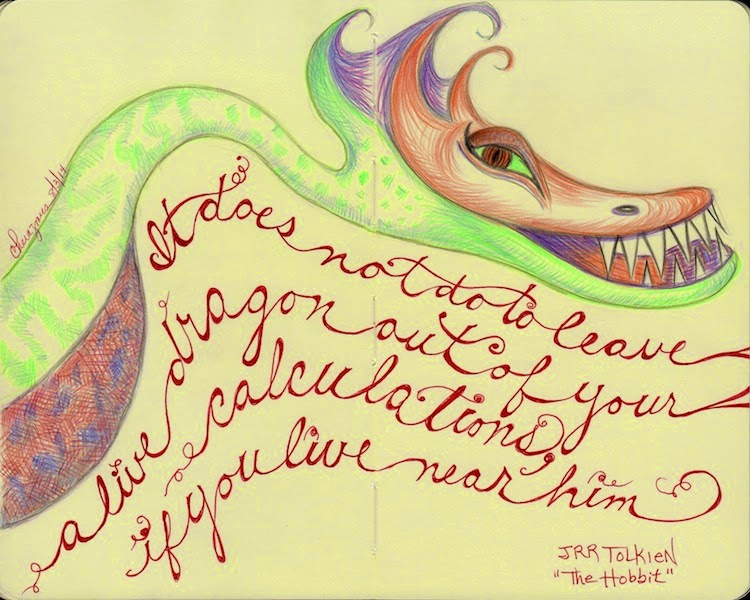 It does not do to leave
a live dragon out of your
calculations,
if you live near him
JRR TOLKIEN
"The Hobbit"